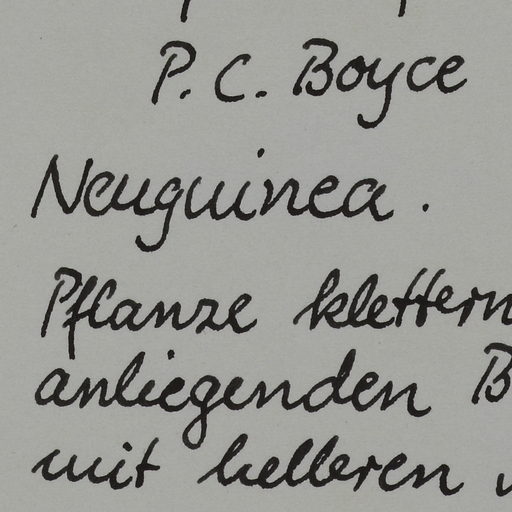 P. C. Boyce
Neuguinea.
Pflanze klettern
anliegenden B
mit helleren